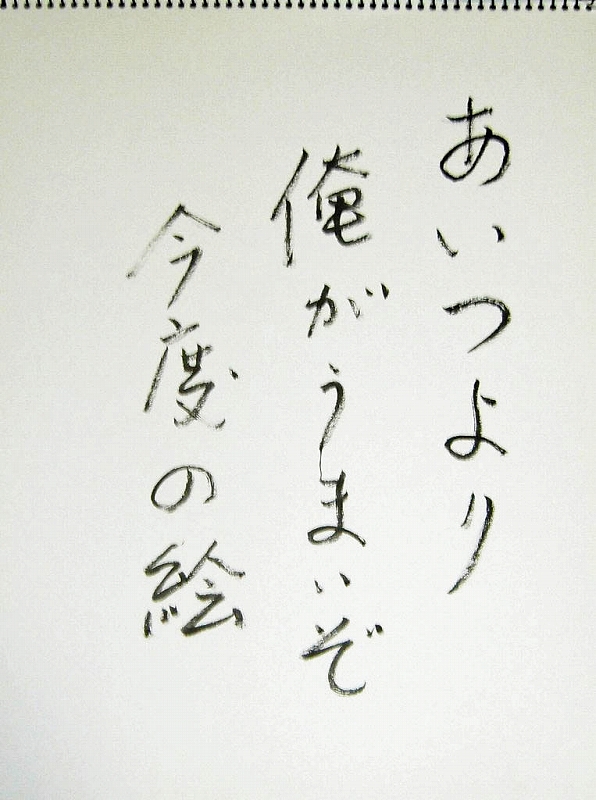 あいつより
俺がうまいぞ
今度の絵